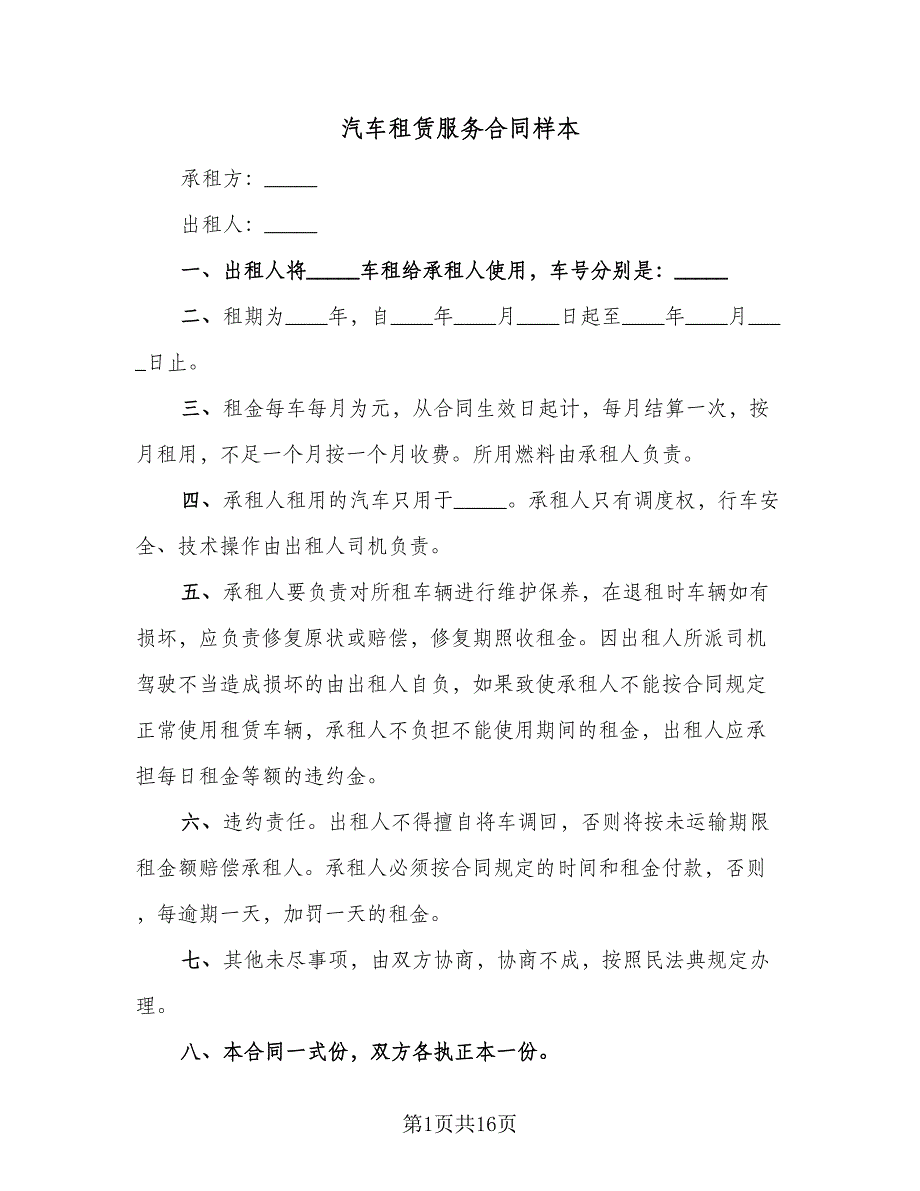 汽车租赁服务合同样本
承租方：_____
出租人：_____
一、出租人将_____车租给承租人使用，车号分别是：_____
二、租期为____年，自____年____月____日起至____年____月___
_日止。
三、租金每车每月为元，从合同生效日起计，每月结算一次，按
月租用，不足一个月按一个月收费。所用燃料由承租人负责。
四、承租人租用的汽车只用于_____。承租人只有调度权，行车安
全、技术操作由出租人司机负责。
五、承租人要负责对所租车辆进行维护保养，在退租时车辆如有
损坏，应负责修复原状或赔偿，修复期照收租金。因出租人所派司机
驾驶不当造成损坏的由出租人自负，如果致使承租人不能按合同规定
正常使用租赁车辆，承租人不负担不能使用期间的租金，出租人应承
担每日租金等额的违约金。
六、违约责任。出租人不得擅自将车调回，否则将按未运输期限
租金额赔偿承租人。承租人必须按合同规定的时间和租金付款，否则
，每逾期一天，加罚一天的租金。
七、其他未尽事项，由双方协商，协商不成，按照民法典规定办
理。
八、本合同一式份，双方各执正本一份。
第1页共16页